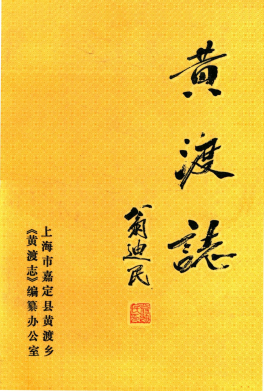 黄渡誌
翁迪民
上海市嘉定县黄渡乡
《黄渡志》编纂办公室